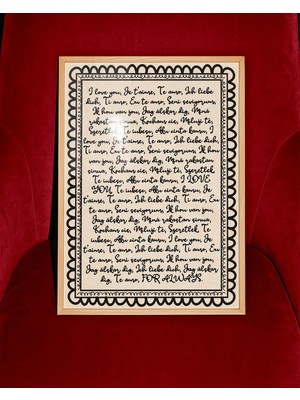 I love you, Je t'aime, Te amo, Ich liebe
dich, Ti amo, Eu te amo, Seni seviyorum,
Ik hou van jou, Jag älskar dig, Mná
rakastan sinua, Kocham cię, Miluji tě,
Szeretlek Te iubesc, Aku cinta kamu, I
love you, Je t'aime, Te amo, Ich liebe dich,
Ti amo, Eu te amo, Seni seviyorum, Ik hou
van jou, Jag älskar dig, Mná rakastan
sinua, Kocham cię, Miluji tě, Szeretlek
Te iubesc, Aku cinta kamu, I LOVE
YOU, Te iubesc, Aku cinta kamu, Je
t'aime, Te amo, Ich liebe dich, Ti amo, Eu
te amo, Seni seviyorum, Ik hou van jou,
Jag älskar dig, Mná rakastan sinua,
Kocham cię, Miluji tě, Szeretlek, Te
iubesc, Aku cinta kamu, I love you, Je
t'aime, Te amo, Ich liebe dich, Ti amo, Eu
te amo, Seni seviyorum, Ik hou van jou,
Jag älskar dig, Ich liebe dich, Jag älskar
dig, Te amo, FOR ALWAYS.